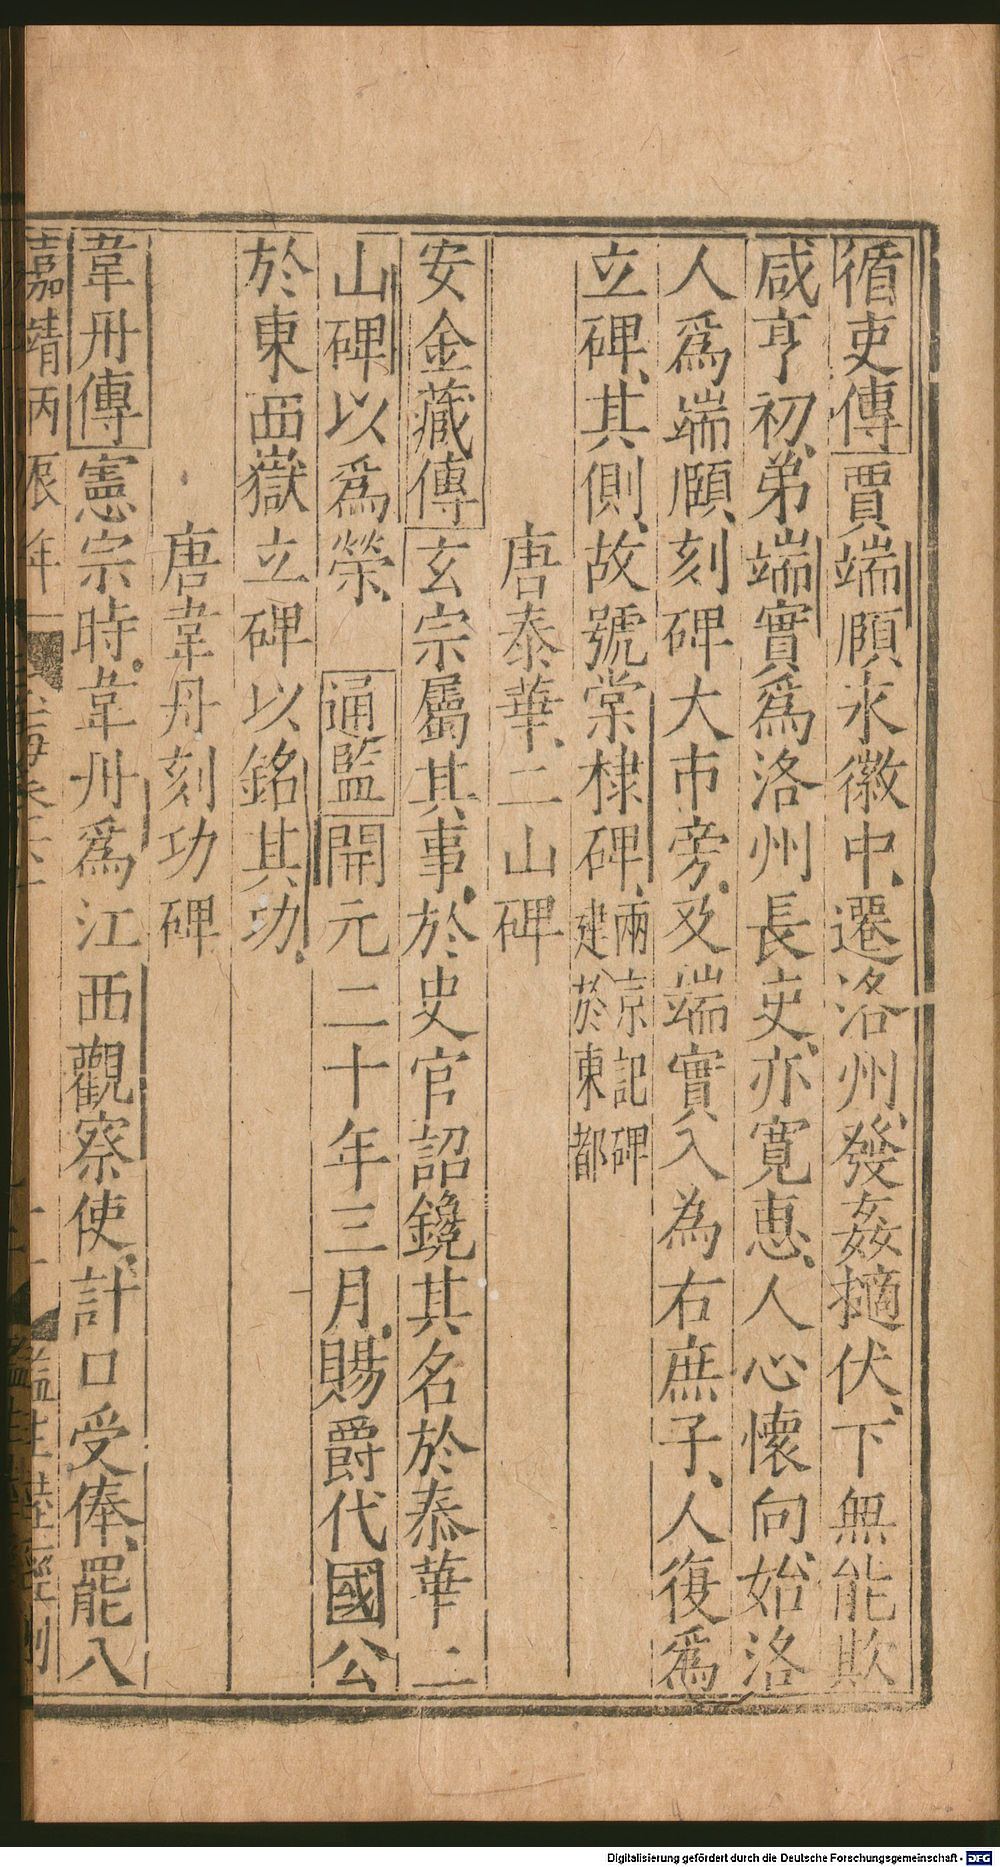 循吏傳賈端頤永徽中遷洛州發姦擿伏下無能欺
咸亨初弟端實爲洛州長吏亦寛惠人心懷向始洛
人爲端頤刻碑大市旁及端實入為右庶子人復爲
立碑其側故號棠棣碑兩京記碑建於東都
唐泰華二山碑
安金藏傳玄宗屬其事於史官詔鑱其名於泰華二
山碑以爲榮通監開元二十年三月賜爵代國公
於東西嶽立碑以銘其功
唐韋丹刻功碑
韋丹傳憲宗時韋丹爲江西觀察使計口受俸罷八
嘉靖丙辰年
Digitalisierung gefördert durch die Deutsche Forschungsgemeinschaft - DFG